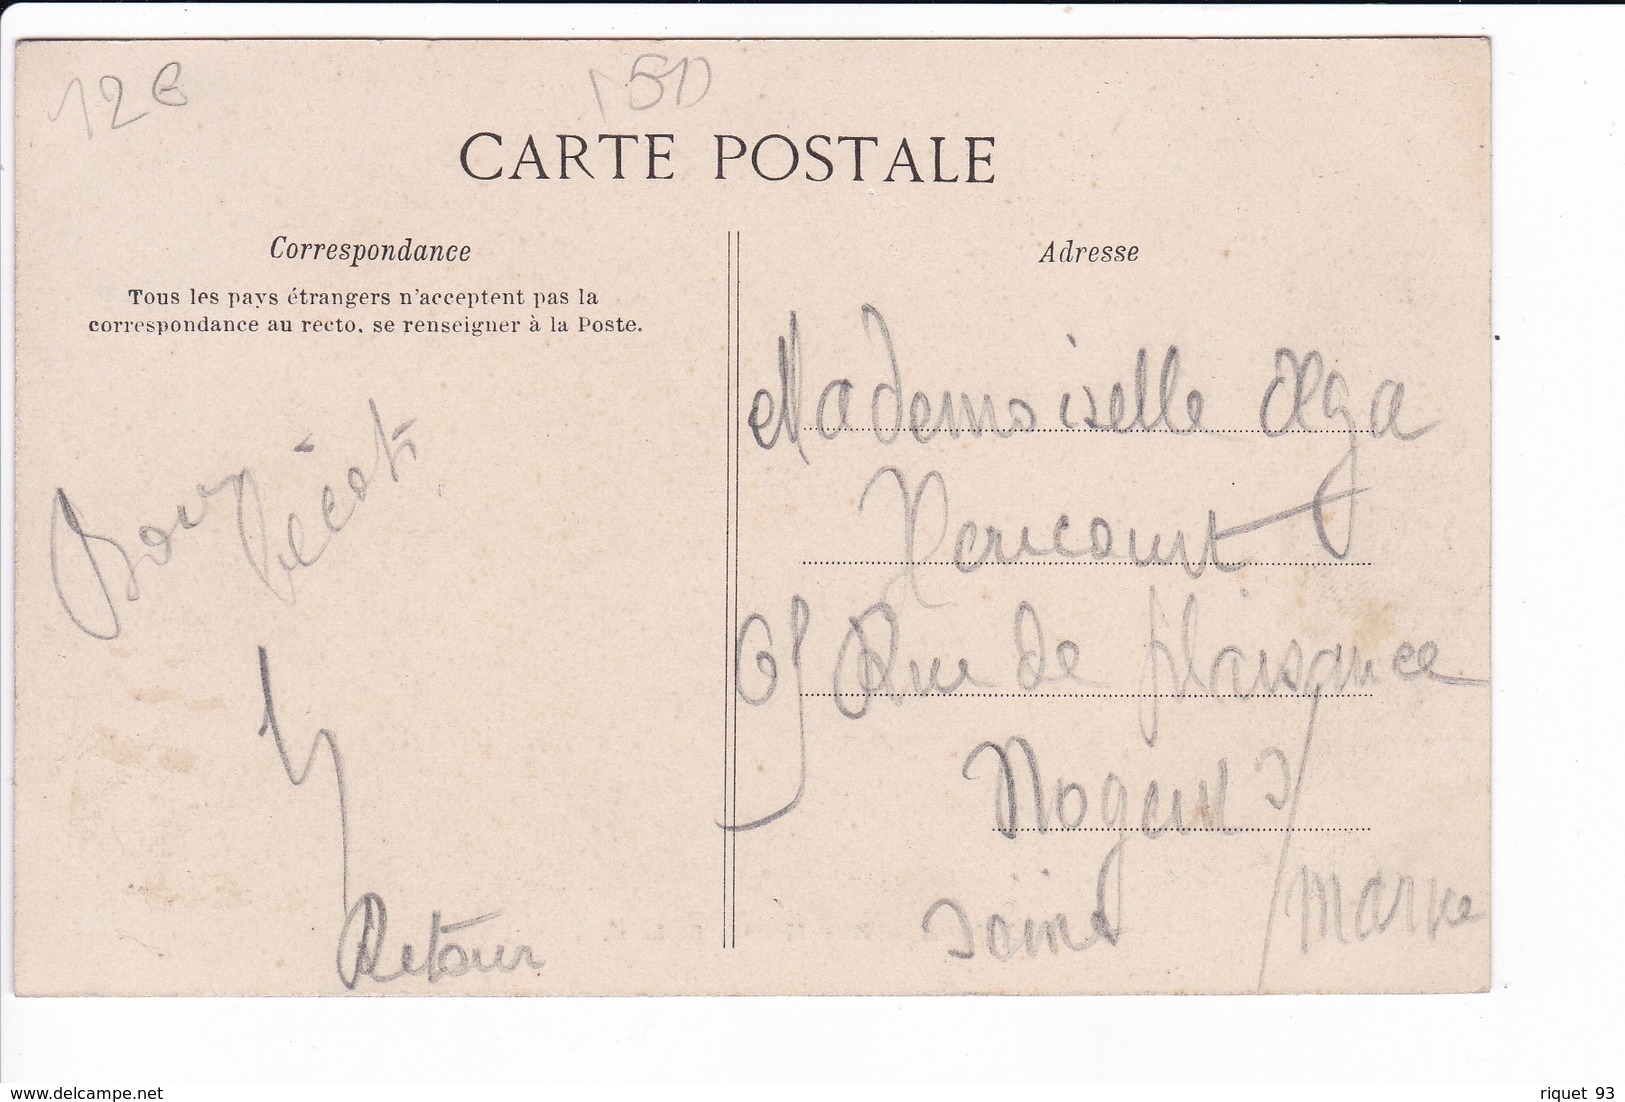 12€
(51)
CARTE POSTALE
Correspondance
Tous les pays étrangers n'acceptent pas la
correspondance au recto, se renseigner à la Poste.
Bour
Retour
Adresse
Mademoiselle Olga
Hericourt
65 Rue de plaisance
Nogent s/ Marne
Seine
www.delcampe.net
riquet 93